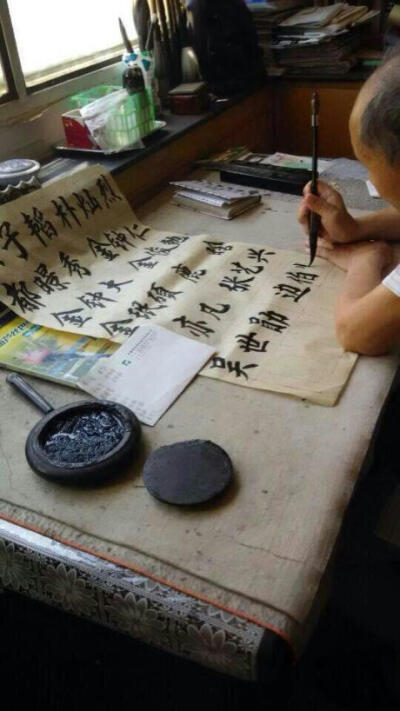 子韬 朴灿烈
都暻秀 金钟仁
金钟大 金俊勉
金珉硕 鹿晗
亦凡 张艺兴
吴世勋 边伯